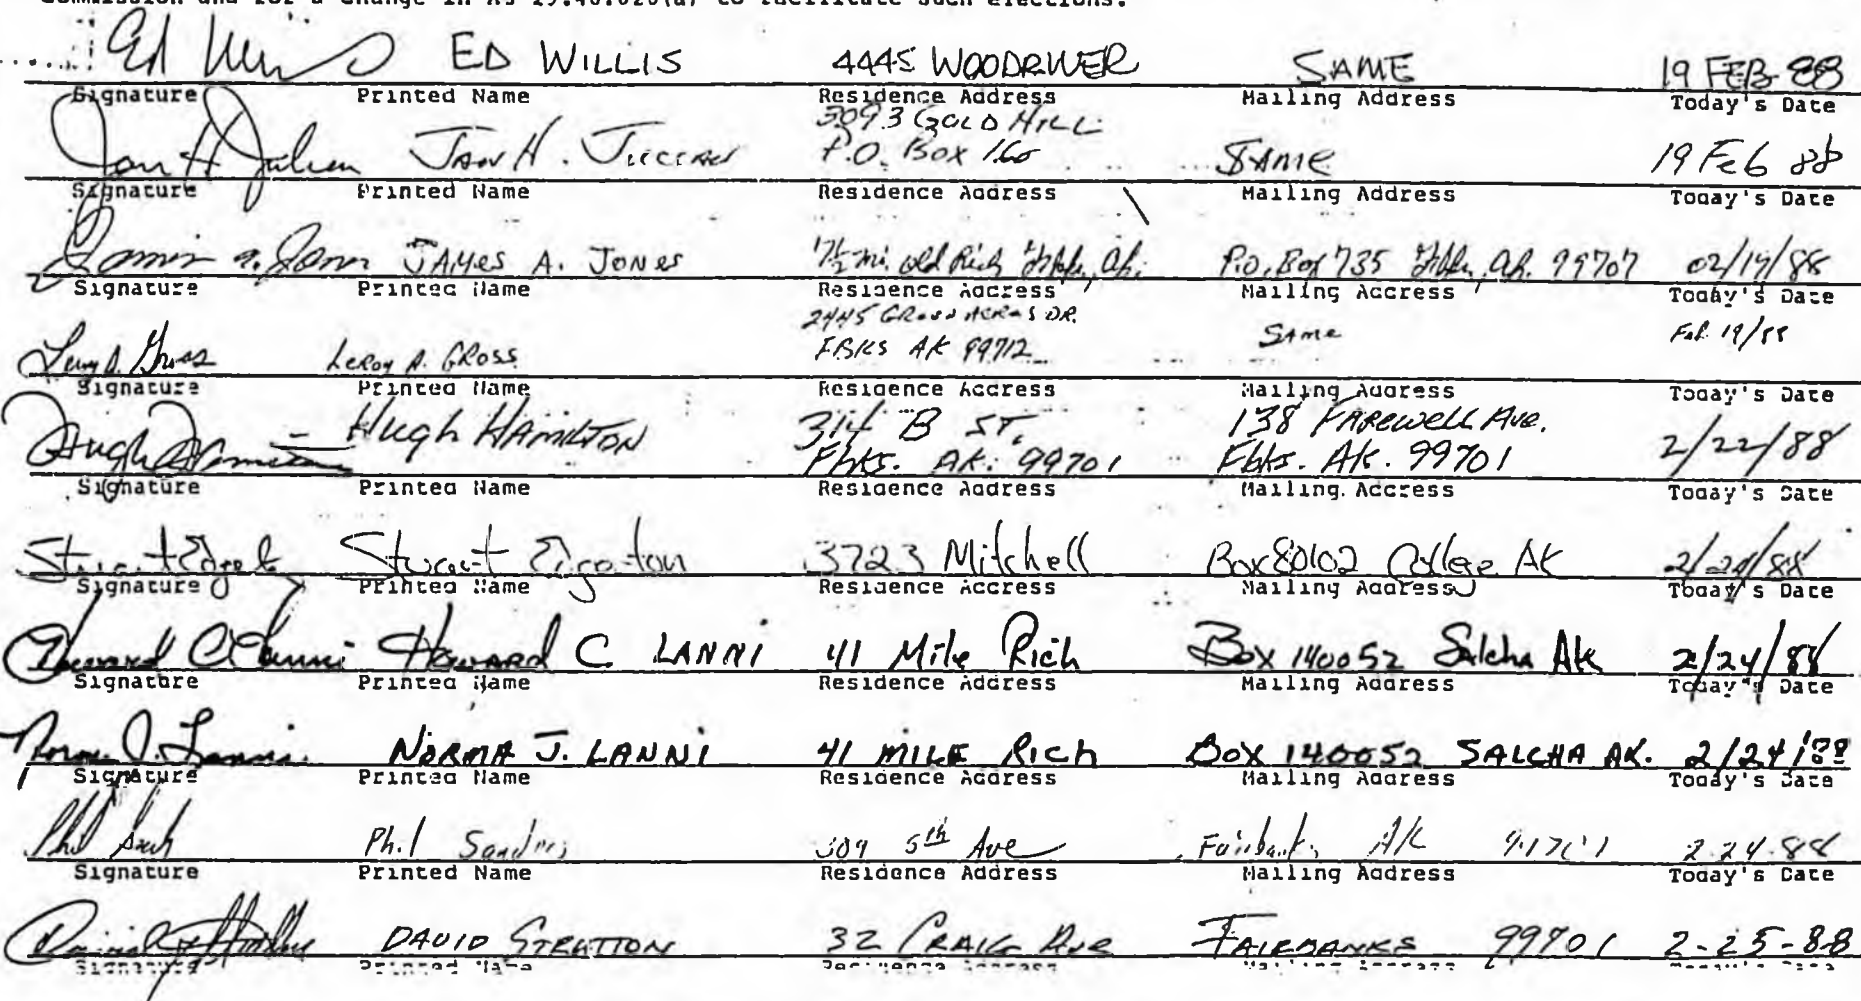 Commission and for a change in AS 29.40.020(a) to facilitate such elections.
Ed Willis ED WILLIS 4445 WOODRIVER SAME 19 FEB 88
Signature Printed Name Residence Address Mailing Address Today's Date
3093 GOLD HILL
Jan H. P.O. Box 160 SAME 19 Feb 88
Signature Printed Name Residence Address Mailing Address Today's Date
James A. Jones JAMES A. JONES 17½ mi. old Rich P.O. Box 735 99707 02/19/88
Signature Printed Name Residence Address Mailing Address Today's Date
2445 DR. Same Feb 19/88
Leroy A. Gross LeRoy A. GROSS FBKS AK 99712
Signature Printed Name Residence Address Mailing Address Today's Date
Hugh Hamilton Hugh HAMILTON 314 B ST. 138 FAREWELL Ave. 2/22/88
Fbks. AK. 99701 Fbks. Ak. 99701
Signature Printed Name Residence Address Mailing Address Today's Date
Stuart 3723 Mitchell Box 80102 College AK 2/24/88
Signature Printed Name Residence Address Mailing Address Today's Date
Howard C Lanni Howard C. LANNI 41 Mile Rich Box 140052 Salcha Ak 2/24/88
Signature Printed Name Residence Address Mailing Address Today's Date
Norma J. Lanni NORMA J. LANNI 41 MILE Rich BOX 140052 SALCHA AK. 2/24/88
Signature Printed Name Residence Address Mailing Address Today's Date
Phil Phil Sanders 5th Ave Fairbanks AK 2-24-88
Signature Printed Name Residence Address Mailing Address Today's Date
David DAVID STRATTON 32 CRAIG AVE FAIRBANKS 99701 2-25-88
Signature Printed Name Residence Address Mailing Address Today's Date